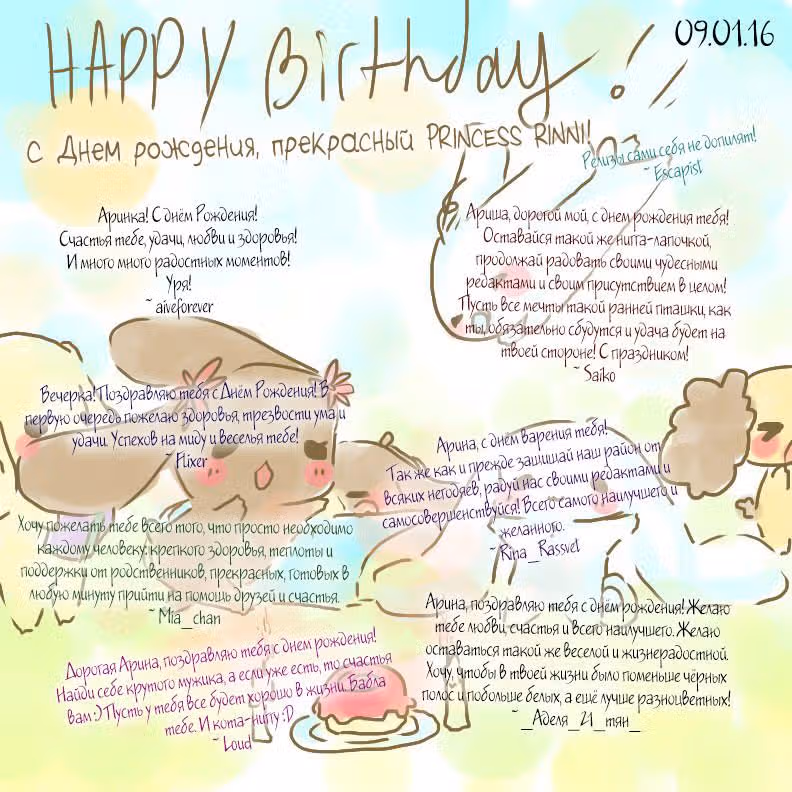 HAPPY Birthday!!
09.01.16
С Днем рождения, прекрасный PRINCESS RINNI!
Релизы сами себя не допилят!
~ Escapist
Аринка! С днём Рождения!
Счастья тебе, удачи, любви и здоровья!
И много много радостных моментов!
Уря!
~ aiveforever
Ариша, дорогой мой, с днем рождения тебя!
Оставайся такой же нигга-лапочкой,
продолжай радовать своими чудесными
редактами и своим присутствием в целом!
Пусть все мечты такой ранней пташки, как
ты, обязательно сбудутся и удача будет на
твоей стороне! С праздником!
~ Saiko
Вечерка! Поздравляю тебя с Днём Рождения! В
первую очередь пожелаю здоровья, трезвости ума и
удачи. Успехов на миду и веселья тебе!
~ Flixer
Арина, с днём варения тебя!
Так же как и прежде защищай наш район от
всяких негодяев, радуй нас своими редактами и
самосовершенствуйся! Всего самого наилучшего и
желанного.
~ Rina_Rassvet
Хочу пожелать тебе всего того, что просто необходимо
каждому человеку: крепкого здоровья, теплоты и
поддержки от родственников, прекрасных, готовых в
любую минуту прийти на помощь друзей и счастья.
~ Mia_chan
Арина, поздравляю тебя с днём рождения! Желаю
тебе любви, счастья и всего наилучшего. Желаю
оставаться такой же веселой и жизнерадостной.
Хочу, чтобы в твоей жизни было поменьше чёрных
полос и побольше белых, а ещё лучше разноцветных!
~ _Аделя_21_тян_
Дорогая Арина, поздравляю тебя с днем рождения!
Найди себе крутого мужика, а если уже есть, то счастья
вам :) Пусть у тебя все будет хорошо в жизни. Бабла
тебе. И кота-нигту :D
~ Loud